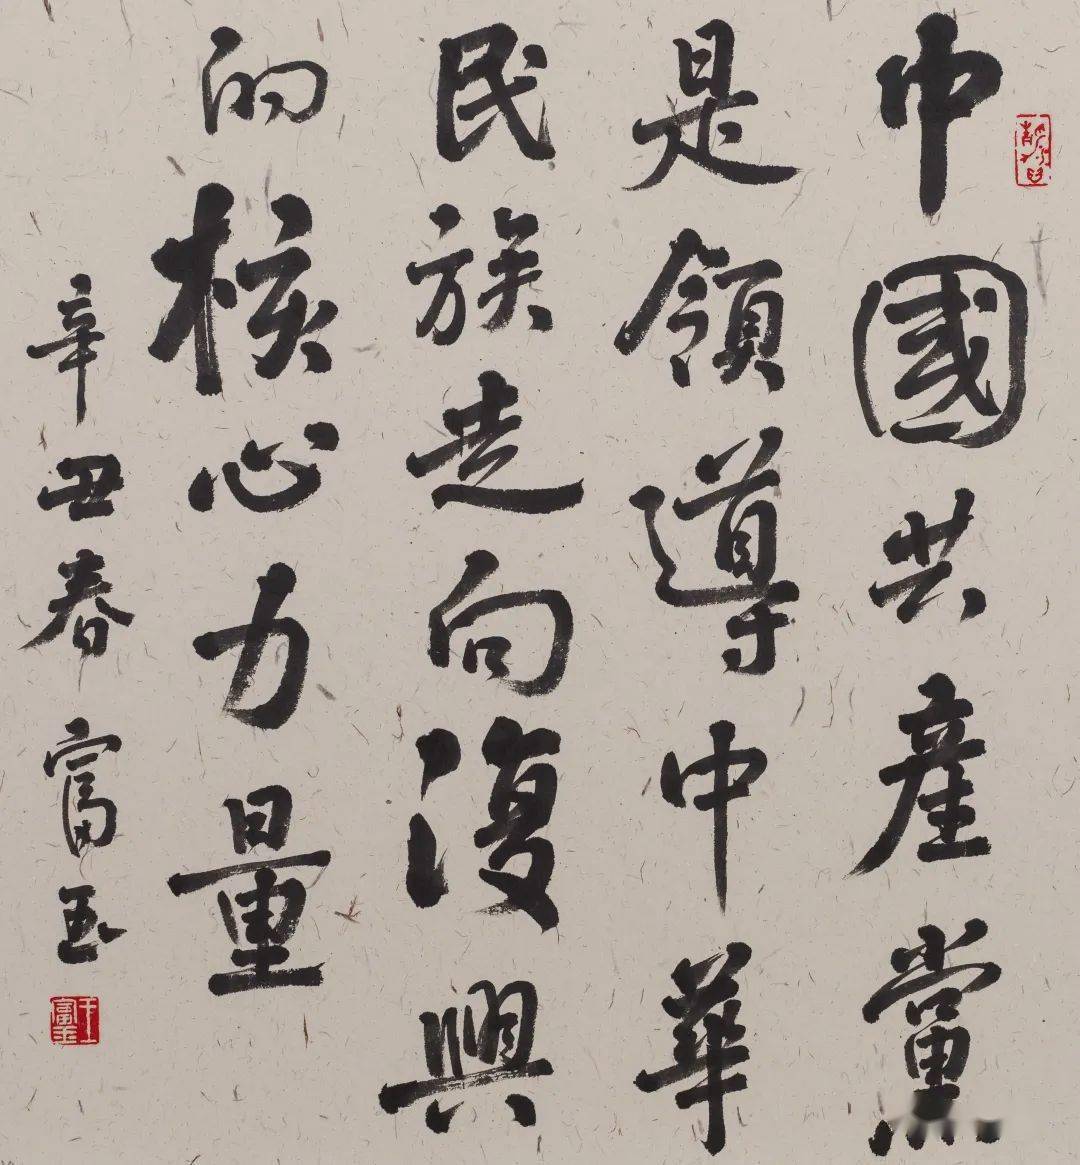 中國共產黨
是領導中華
民族走向復興
的核心力量
辛丑春 富玉